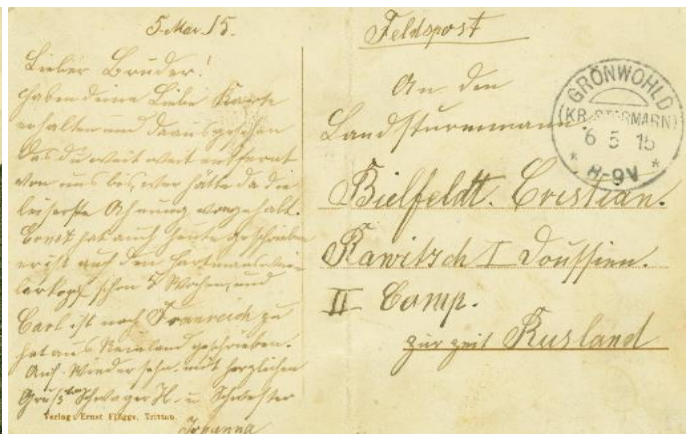 5. Mai. 15.
Lieber Bruder!
haben deine Liebe Karte
erhalten und daraus gesehen
das du weit weit entfernt
von uns bis, wer hätte da die
leiserste Ahnung von gehabt.
Ernst hat auch heute geschrieben
er ist auf den Hartmannsweiler
kopf schon 7 Wochen, und
Carl ist nach Franreich zu
hat aus geschrieben.
Auf Wiedersehn mit herzlichen
Gruß Schwager H. u. Schwester
Johanna
Verlag: Ernst Flügge, Trittau.
Feldpost
An den
Landsturmmann
Bielfeldt. Cristian.
Rawitsch I
II Comp.
zur zeit Rusland
GRÖNWOHLD
(KR. STORMARN)
6 5 15
* 8-9V *